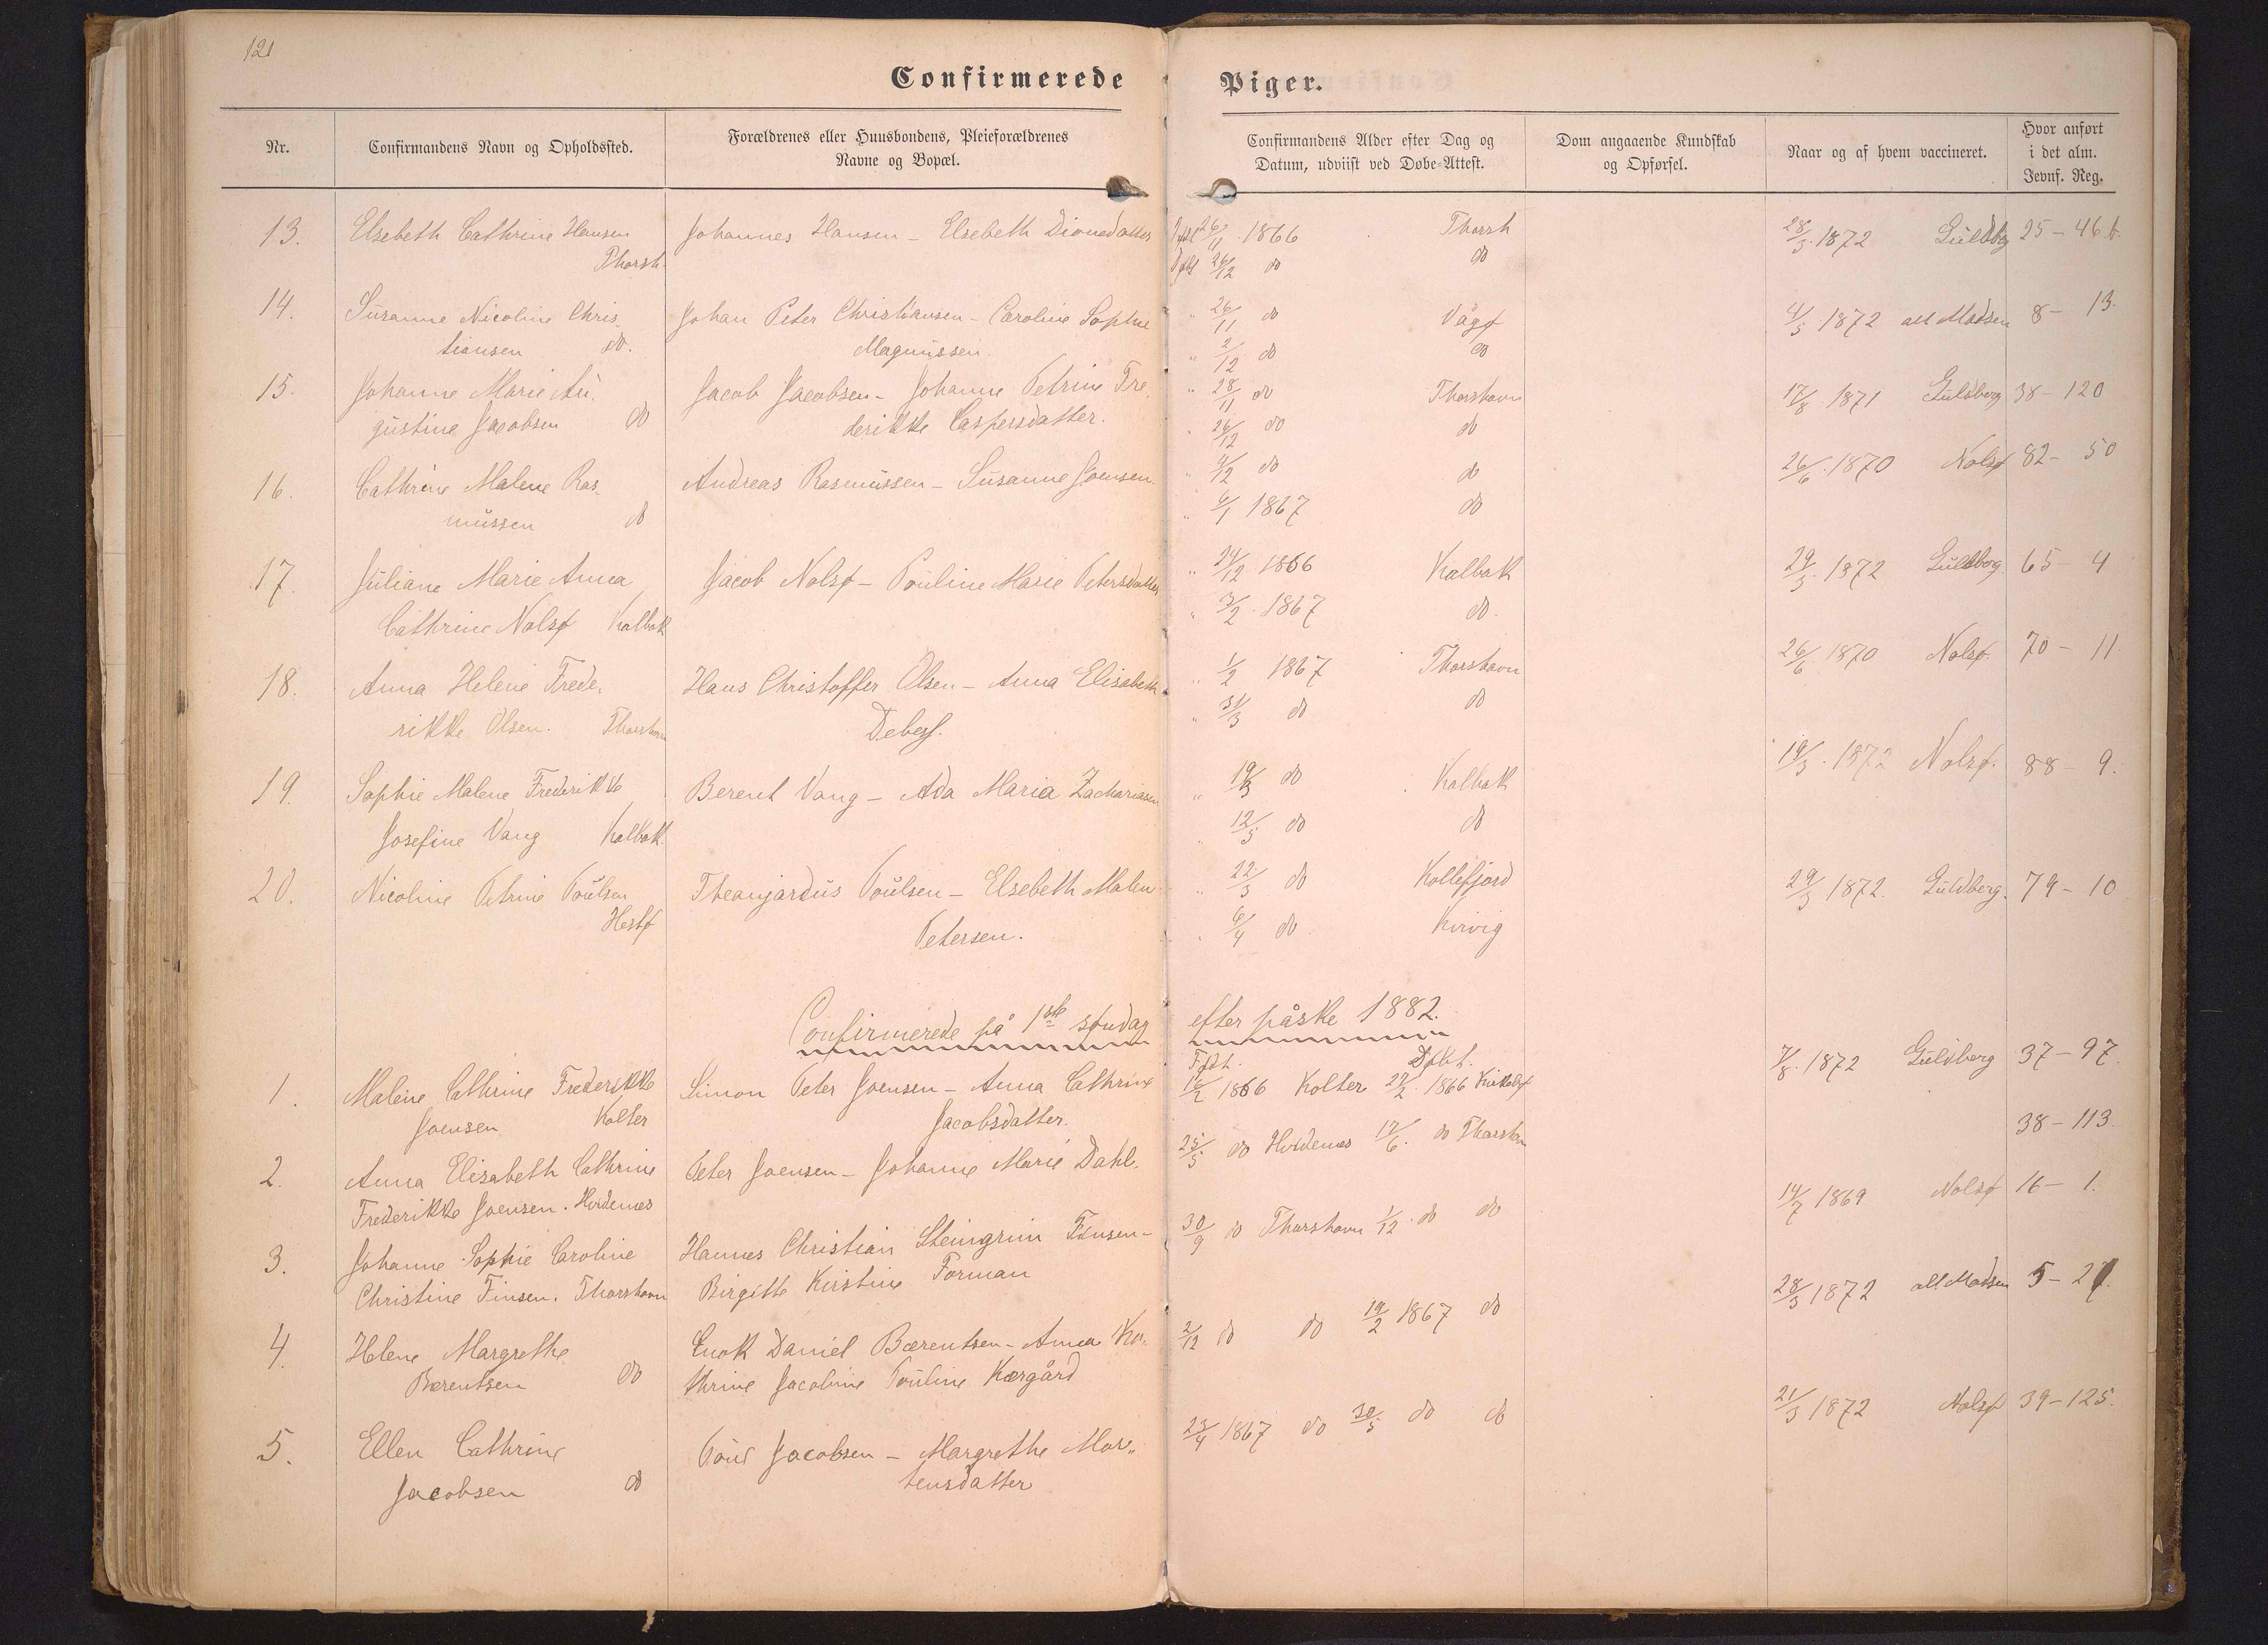 121
Confirmerede Piger.
Nr. Confirmandens Navn og Opholdssted. Forældrenes eller Huusbondens, Pleieforældrenes Navne og Bopæl. Confirmandens Alder efter Dag og Datum, udviist ved Døbe-Attest. Dom angaaende Kundskab og Opførsel. Naar og af hvem vaccineret. Hvor anført i det alm. Jevnf. Reg.
13. Elsebeth Cathrine Hansen Johannes Hansen - Elsebeth Dionedatter 26/11 1866 Thorsh 28/5 1872 Guldbg 25-46 b.
Thorsh. Døbt 26/12 do do
14. Susanne Nicoline Chris Johan Peter Christiansen - Caroline Sophie " 26/11 do Vågø 4/5 1872 all Madsen 8- 13.
tiansen do. Magnussen. " 2/12 do do
15. Johanne Marie Au Jacob Jacobsen - Johanne Petrine Fre " 28/11 do Thorshavn 17/8 1871 Guldberg 38-120
gustine Jacobsen do derikke Caspersdatter. " 26/12 do do
16. Cathrine Malene Ras Andreas Rasmussen - Susanne Joensen " 4/12 do do 26/6 1870 Nolsø 82- 50
mussen do " 6/1 1867 do
17. Juliane Marie Anna Jacob Nolsø - Pouline Marie Petersdatter " 24/12 1866 Kalbak 29/5 1872 Guldbog 65- 4
Cathrine Nolsø Kalbak " 3/2 1867 do.
18. Anna Helene Frede. Hans Christoffer Olsen - Anna Elisabeth " 1/2 1867 Thorshavn 26/6 1870 Nolsø. 70- 11
rikke Olsen. Thorshavn Debess. " 31/3 do do
19. Sophie Malene Frederikke Berent Vang - Ada Maria Zachariasen " 19/3 do Kalbak 19/5 1872 Nolsø. 88- 9.
Josefine Vang Kalbak. 12/5 do do
20. Nicoline Petrine Poulsen Theanjardus Poulsen - Elsebeth Malen " 22/3 do Kollefjord 29/5 1872. Guldberg. 79-10
Hestø Petersen. 6/4 do Kvivig
Confirmerede på 1ste søndag efter påske 1882.
Født. Døbt.
1. Malene Cathrine Frederikke Simon Peter Joensen - Anna Cathrine 16/2 1866 Kolter 27/2 1866 Kirkebø 7/8 1872 Guldberg 37-97.
Joensen Kolter Jacobsdatter.
2. Anna Elisabeth Cathrine Peter Joensen - Johanne Marie Dahl. 25/5 do Hvidenes 17/6 do Thorshavn 38-113.
Frederikke Joensen. Hvidenes
3. Johanne Sophie Caroline Hannes Christian Steingrim Finsen- 30/9 do Thorshavn 1/12 do do 14/7 1869 Nolsø 16- 1.
Christine Finsen. Thorshavn Birgitte Kirstine Forman
4. Helene Margrethe Enok Daniel Bærentsen - Anna Ka 2/12 do do 19/2 1867 do 28/5 1872 all Madsen 5-27.
Bærentsen do thrine Jacobine Pouline Kærgård
5. Ellen Cathrine Poul Jacobsen - Margrethe Mor 23/4 1867 do 30/5 do do 21/3 1872 Nolsø 39-125.
Jacobsen do tensdatter